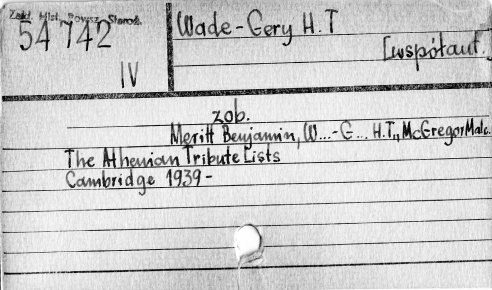 Zakł. Hist. Powsz. Staroż.
54742
IV
Wade-Gery H.T
[współaut.]
zob.
Meritt Benjamin, W...-G... H.T., McGregor Malc.
The Athenian Tribute Lists
Cambridge 1939-